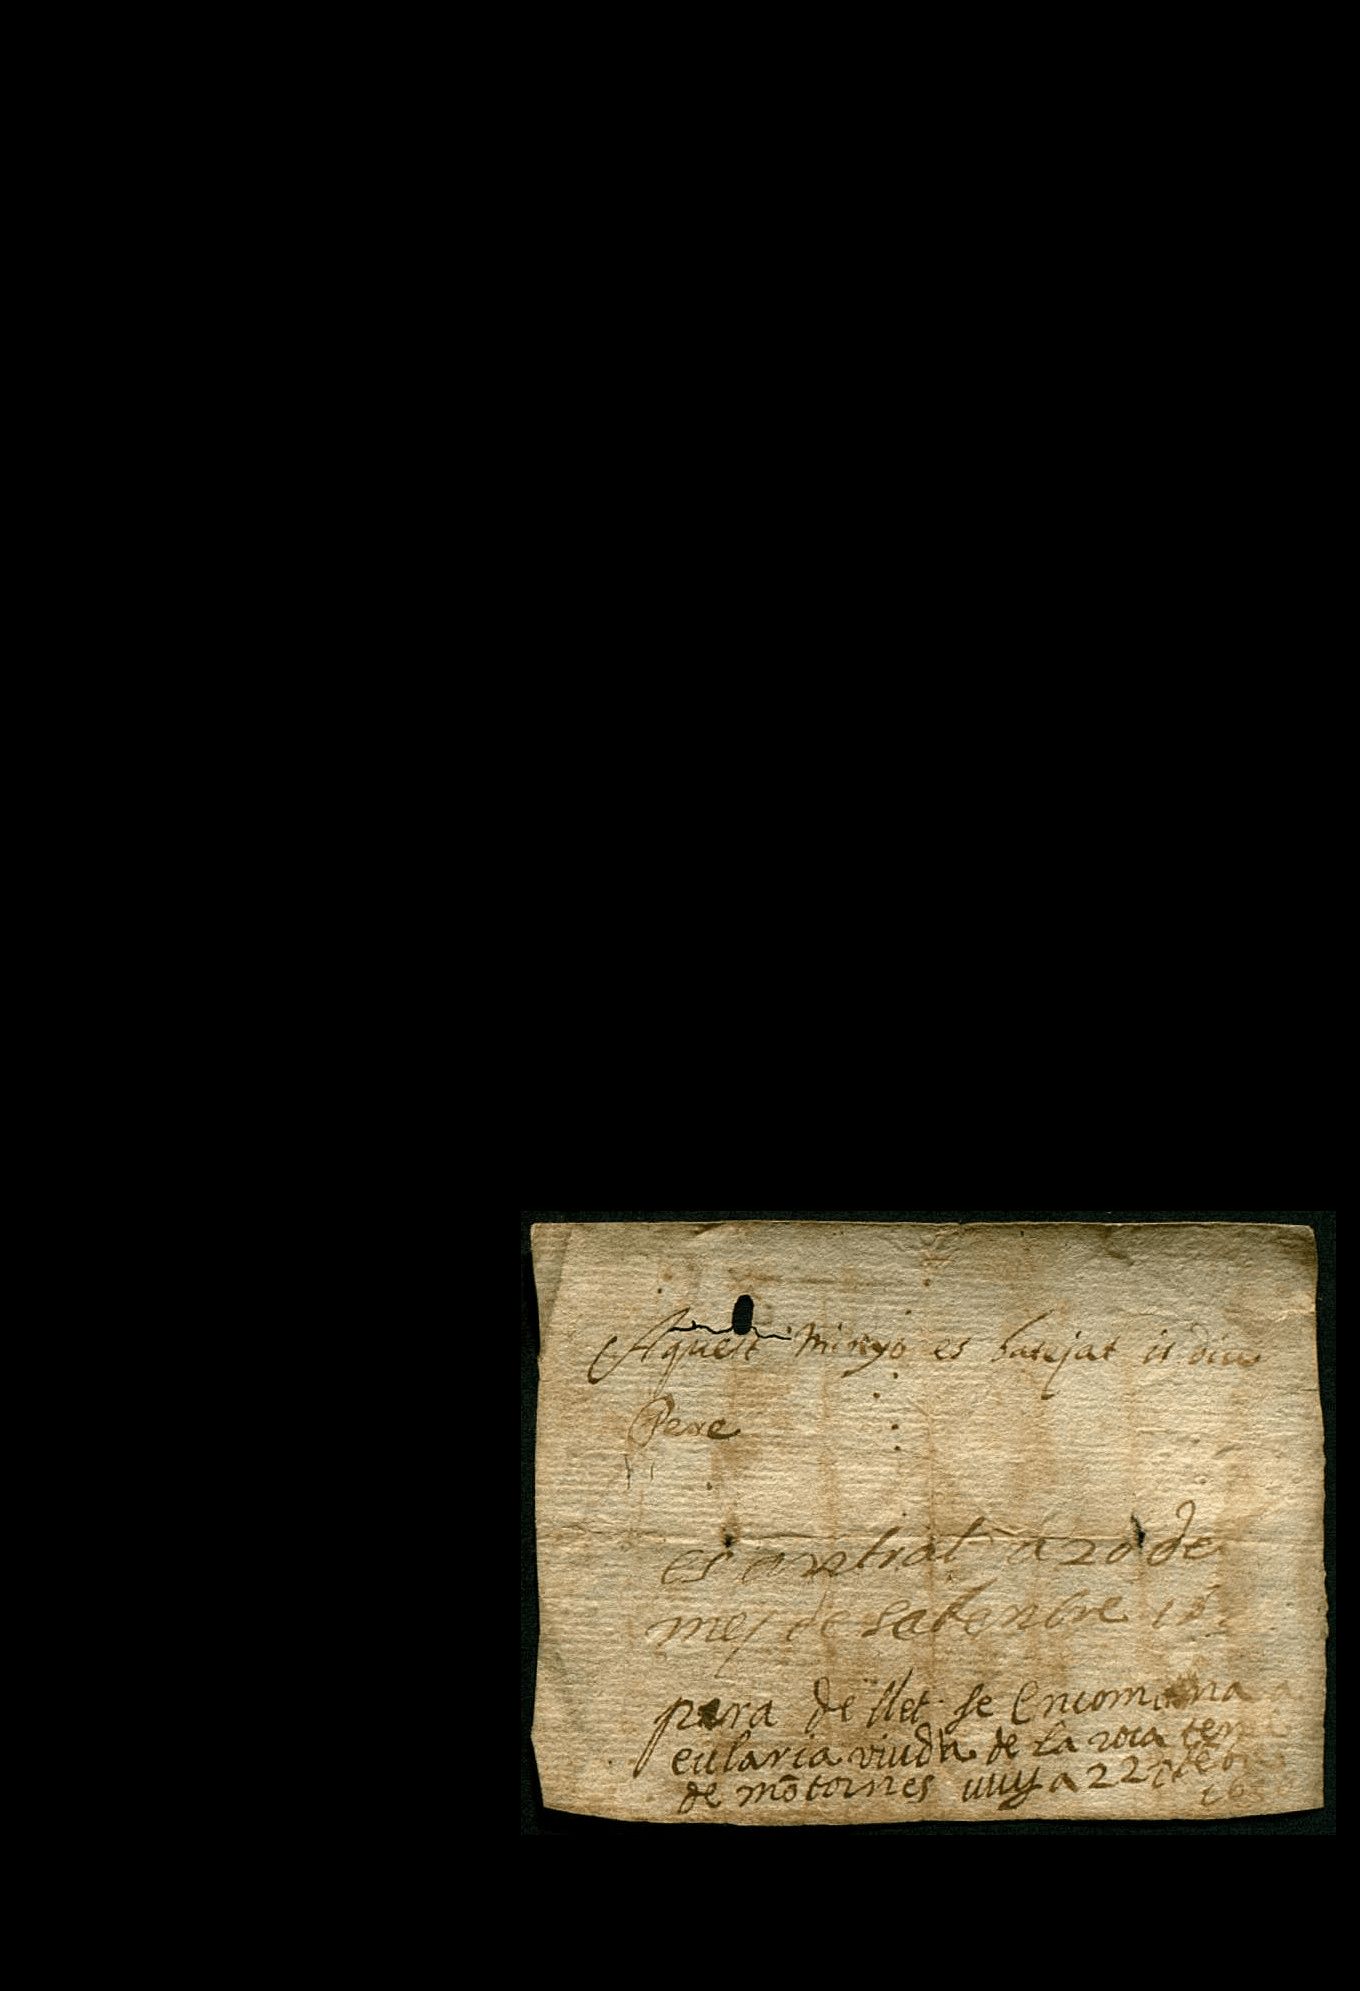 Aquest minyo es batejat is diu
Pere
es antrat a 20 de
mes de setenbre
para de llet se encomana a
eularia viudа de la roca
de mōtornes vuy a 22